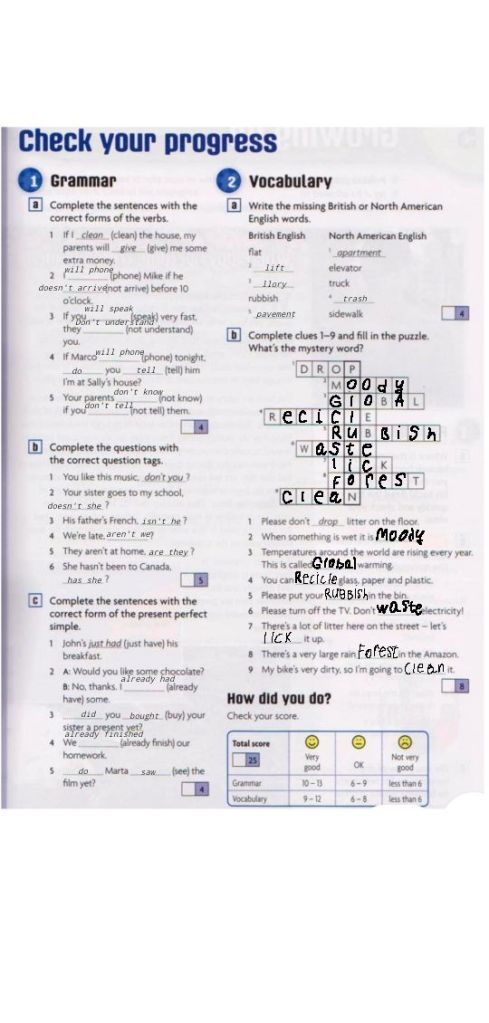 Check your progress
1 Grammar
a Complete the sentences with the
correct forms of the verbs.
1 If I clean (clean) the house, my
parents will give (give) me some
extra money.
will phone
2 I (phone) Mike if he
doesn't arrive (not arrive) before 10
o'clock.
will speak
3 If you (speak) very fast,
Don't understand
they (not understand)
you.
will phone
4 If Marco (phone) tonight,
do you tell (tell) him
I'm at Sally's house?
don't know
5 Your parents (not know)
don't tell
if you (not tell) them.
4
b Complete the questions with
the correct question tags.
1 You like this music, don't you ?
2 Your sister goes to my school,
doesn't she ?
3 His father's French, isn't he ?
4 We're late, aren't we?
5 They aren't at home, are they ?
6 She hasn't been to Canada,
has she ?
5
c Complete the sentences with the
correct form of the present perfect
simple.
1 John's just had (just have) his
breakfast.
2 A: Would you like some chocolate?
already had
B: No, thanks. I (already
have) some.
3 did you bought (buy) your
sister a present yet?
already finished
4 We (already finish) our
homework.
5 do Marta saw (see) the
film yet?
4
2 Vocabulary
a Write the missing British or North American
English words.
British English North American English
flat 1 apartment
2 lift elevator
3 llory truck
rubbish 4 trash
5 pavement sidewalk
4
b Complete clues 1–9 and fill in the puzzle.
What's the mystery word?
DROP
Moody
GloBAL
ReciclE
RuBBiSh
Waste
licK
foresT
cleaN
1 Please don't drop litter on the floor.
2 When something is wet it is Moody
3 Temperatures around the world are rising every year.
This is called Global warming.
4 You can Recicle glass, paper and plastic.
5 Please put your RUBBish in the bin.
6 Please turn off the TV. Don't waste electricity!
7 There's a lot of litter here on the street – let's
lick it up.
8 There's a very large rain Forest in the Amazon.
9 My bike's very dirty, so I'm going to Clean it.
8
How did you do?
Check your score.
Total score
25
Very
good
OK
Not very
good
Grammar 10–13 6–9 less than 6
Vocabulary 9–12 6–8 less than 6